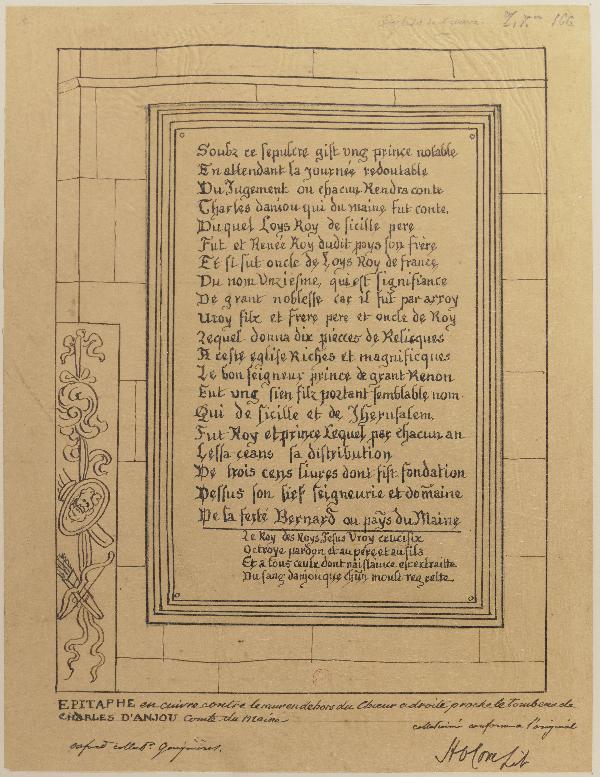 166
Soubz ce sepulcre gist vng prince notable
En attendant la journée redoutable
Du Jugement ou chacun Rendra conte
Charles danjou qui du maine fut conte,
Duquel Loys Roy de sicille pere
Fut et Renée Roy dudit pays son frère
Et si fut oncle de Loys Roy de france
Du nom Vnziesme, qui est signifiance
De grant noblesse car il fut par arroy
Vroy filz et frere pere et oncle de Roy
Lequel donna dix pieces de Relicques
A ceste eglise Riches et magnificques
Le bon seigneur prince de grant Renon
Eut vng sien filz portant semblable nom
Qui de sicille et de Jherusalem,
Fut Roy et prince Lequel par chacun an
Lessa ceans sa distribution
De trois cens livres dont fist fondation
Dessus son fief seigneurie et domaine
De la ferté Bernard ou pays du Maine
Le Roy des Roys Jesus Vroy crucifix
Octroye pardon et au pere et au fils
Et a tous ceulx dont naissance est extraitte
Du sang danjou que chun moult regrette
EPITAPHE en cuivre contre le mur en dehors du Chœur a droite, proche le Tombeau de
CHARLES D'ANJOU Comte du Maine
collationné conforme a l'original
Gaignières.